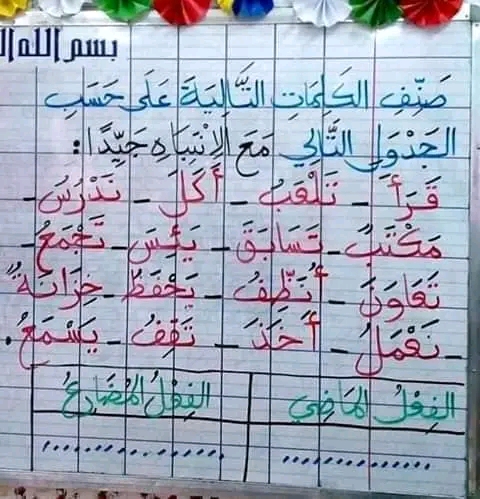 بسم الله ال
صَنِّفِ الكَلِمَاتِ التَّالِيَةَ عَلَى حَسَبِ
الجَدْوَلِ التَّالِي مَعَ الِانْتِبَاهِ جَيِّدًا :
قَرَأَ - تَلْعَبُ - أَكَلَ - تَدْرُسُ -
مَكْتَبٌ - تَسَابَقَ - يَئِسَ - تَجْمَعُ -
تَعَاوَنَ - أُنَظِّفُ - يَحْفَظُ - خِزَانَةٌ
- نَعْمَلُ - أَخَذَ - تَقِفُ - يَسْمَعُ .
الفِعْلُ المَاضِي الفِعْلُ المُضَارِعُ